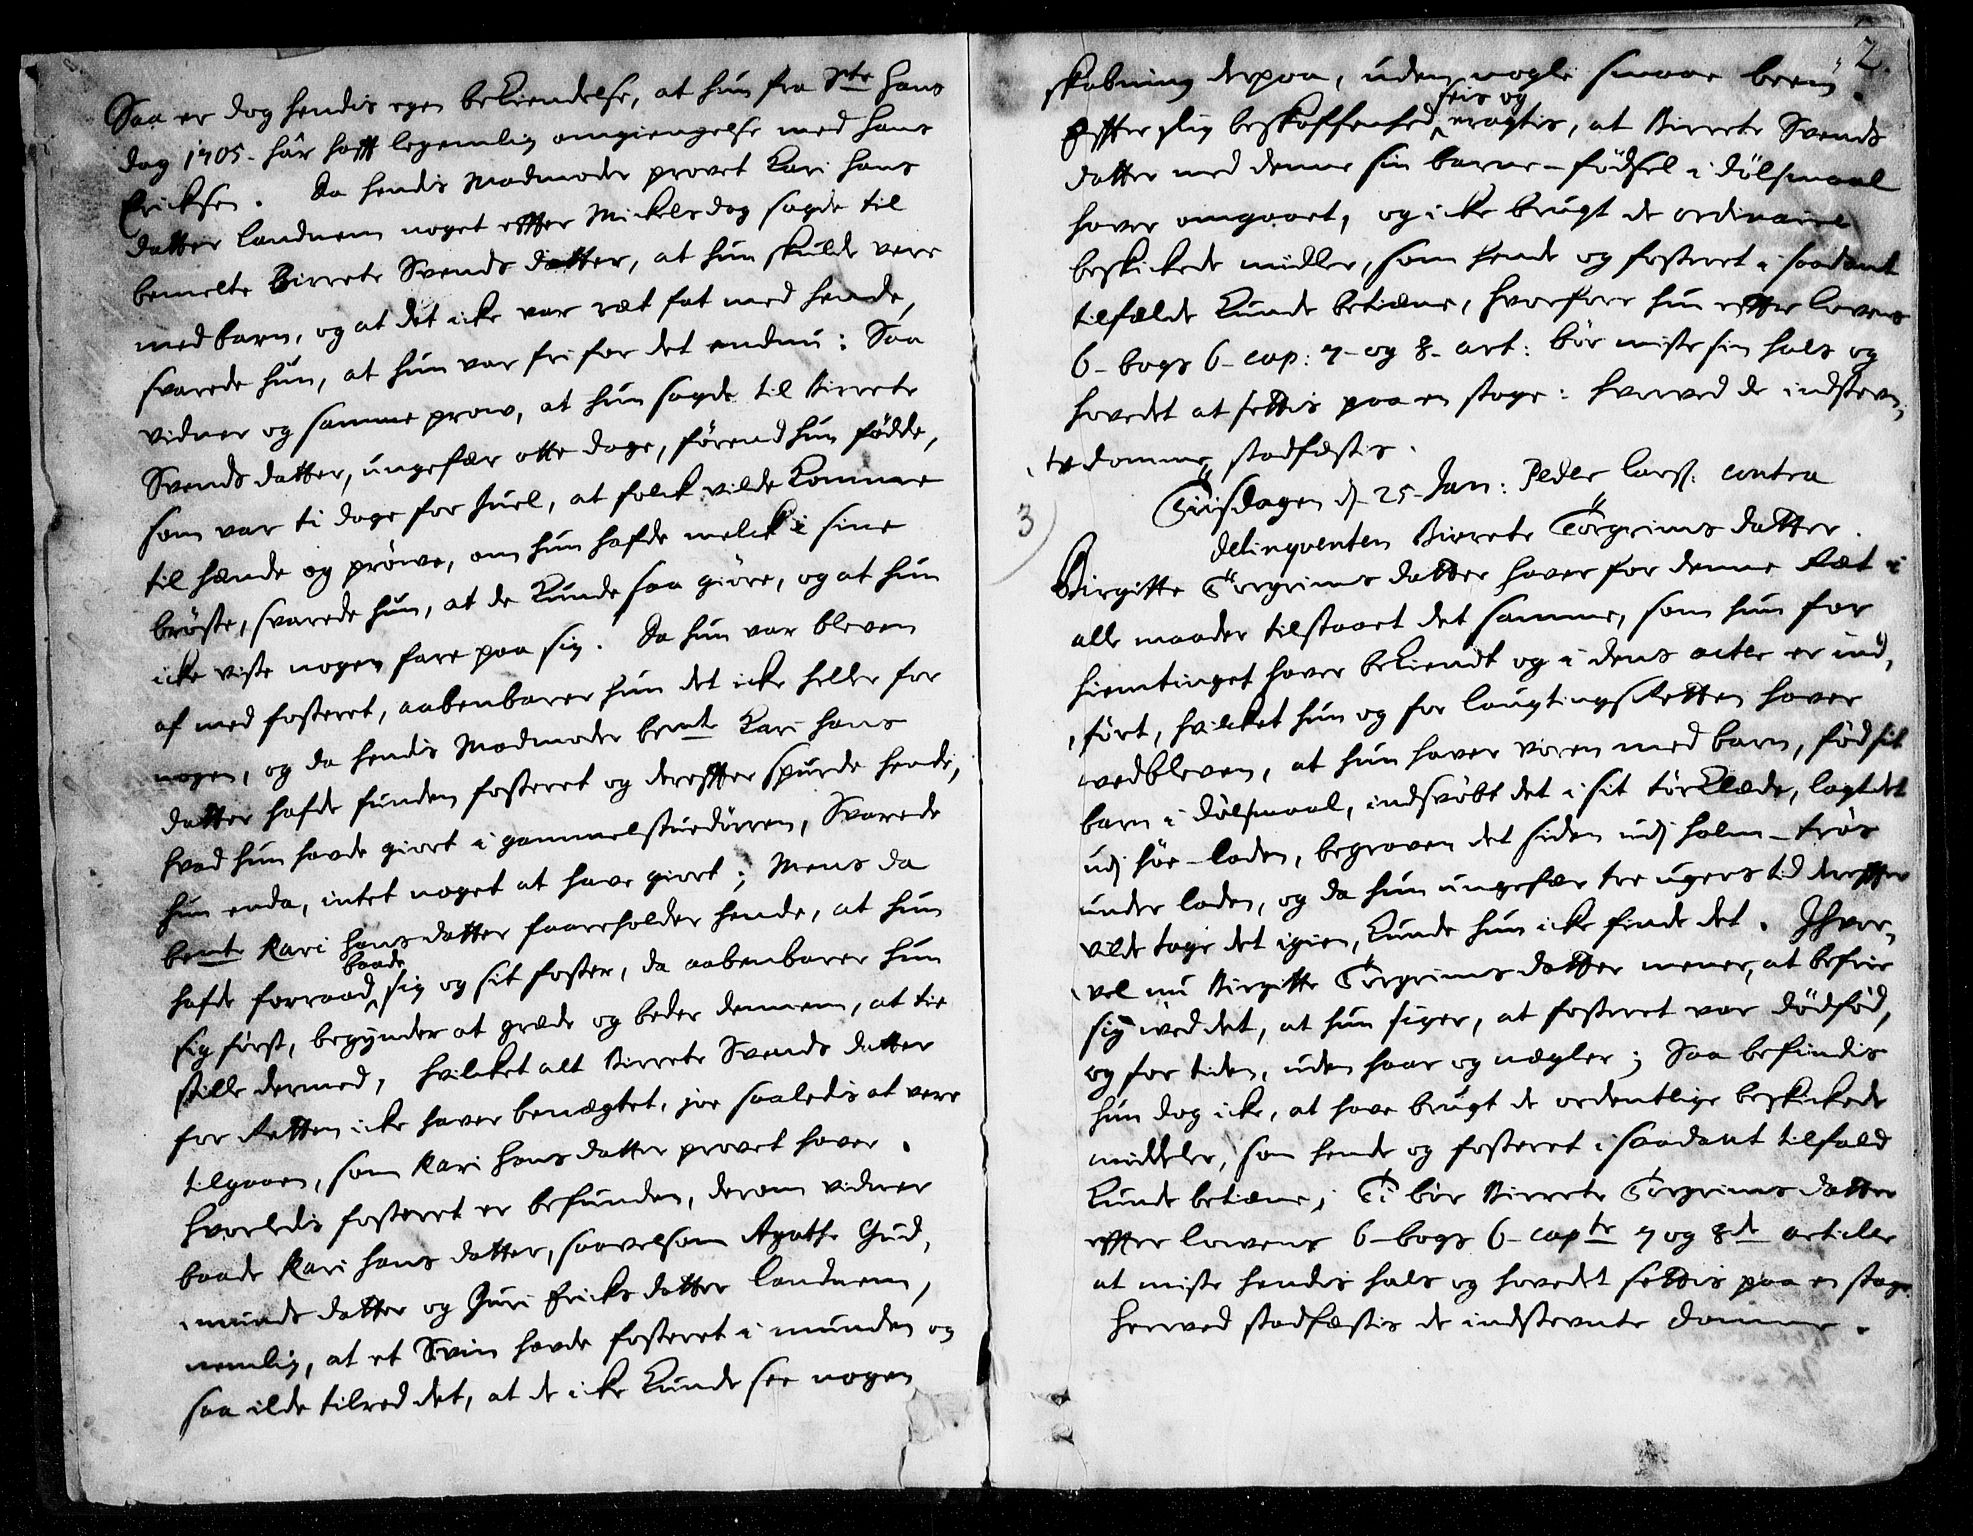 Saa er dog hendis egen bekiendelse, at hun fra Ste Hans
dag 1705 - hâr hafft legemlig omgiengelse med Hans
Ericksen. Da hendis Madmoder provet Kari Hans
datter Landnem noget effter Mickelsdag sagde til
bemelte Birrete Svends datter, at hun skulde vere
med barn, og at det icke var ræt fat med hende,
svarede hun, at hun var fri for det endnu: Saa
vidner og samme prow, at hun sagde til Birrete
Svends datter, ungefær otte dage, förend hun födde,
som var ti dage for Juel, at folck vilde komme
til hænde og pröwe, om hun hafde melck i sine
bröste, svarede hun, at de kunde saa giöre, og at hun
icke viste nogen fare paa sig. Da hun var bleven
af med fosteret, aabenbarer hun det icke heller for
nogen, og da hendis Madmoder bemte Kari Hans
datter hafde funden fosteret og dereffter spurde hende,
hvad hun havde giort i gammelstuedörren, Svarede
hun enda, intet noget at have giort; Mens da
bemte Kari Hansdatter faareholder hende, at hun
hafde forraad baade sig og sit foster, da aabenbarer hun
sig först, begynder at græde og beder dennem, at tie
stille dermed, hvilcket alt Birrete Svends datter
for Retten icke haver benægtet, joe saaledis at vere
tilgaaen, som Kari Hans datter provet haver.
Hvorledis fosteret er befunden, derom vidner
baade Kari Hans datter, saavelsom Agathe Gud,
munds datter og Guri Ericks datter Landnem,
nemlig, at et Svin havde fosteret i munden og
saa ilde tilred det, at de icke kunde see nogen
2.
skabning derpaa, uden nogle smaae been.
Effter slig beskaffenhed seis og eragtis, at Birrete Svends
datter med denne sin barne-födsel i dölsmaal
haver omgaaet, og icke brugt de ordinaire
beskickede midler, som hende og fosteret i saadant
tilfælde kunde betiæne, hvorfore hun effter lovens
6 - bogs 6 - cap: 7 - og 8 - art: bör miste sin hals og
hovedet at settis paa en stage: Hvorved de indstevn,
te domme stadfæstis.
3)
Tiisdagen d. 25 - Jan: Peder Larss. contra
delinqventen Birrete Törgrims datter.
Birgitte Törgrims datter haver for denne Ræt i
alle maader tilstaaet det samme, som hun for
hiemtinget haver bekiendt og i dens acter er ind,
fört, hvilcket hun og for laugtings Retten haver
vedbleven, at hun haver væren med barn, född sit
barn i dölsmaal, indsvöbt det i sit törklæde, lagt det
udj höe-laden, begraven det siden udj halm-trös
under laden, og da hun ungefær tre ugers tid dereffter
vilde tage det igien, kunde hun icke finde det. Ihvor,
vel nu Birgitte Törgrims datter mener, at befrie
sig wed det, at hun siger, at fosteret var dödföd,
og for tiden, uden haar og nægler; Saa befindis
hun dog icke, at have brugt de ordentlige beskickede
middeler, som hende og fosteret i saadant tilfald
kunde betiæne; Ti bör Birrete Törgrims datter
effter lowens 6 - bogs 6 - capte 7 og 8de articler
at miste hendis hals og hovedet settis paa en stage.
Herved stadfæstis de indstevnte domme.